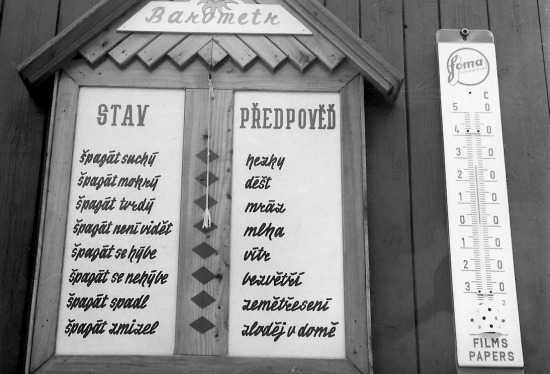 Barometr
STAV
špagát suchý
špagát mokrý
špagát tvrdý
špagát není vidět
špagát se hýbe
špagát se nehýbe
špagát spadl
špagát zmizel
PŘEDPOVĚĎ
hezky
déšť
mráz
mlha
vítr
bezvětří
zemětřesení
zloděj v domě
foma
C
5 0
4 0
3 0
2 0
1 0
0 0
1 0
2 0
3 0
FILMS
PAPERS